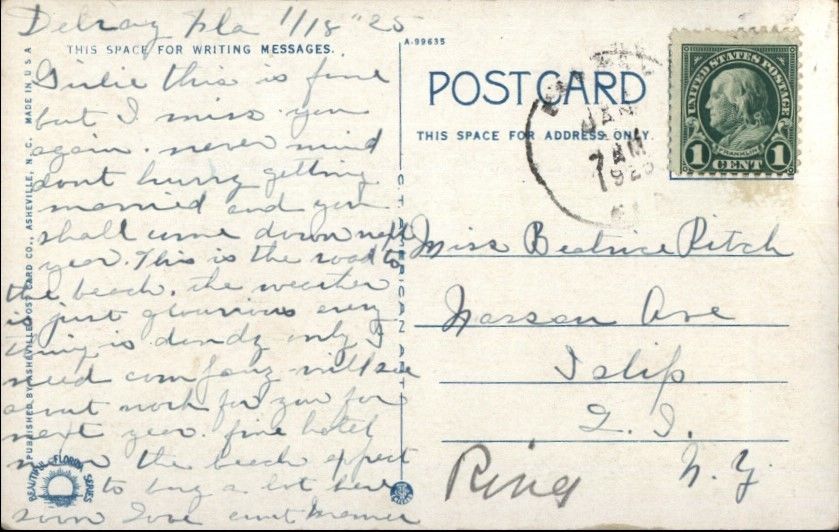 Delray Fla 1/18 "25
THIS SPACE FOR WRITING MESSAGES.
Girlie this is fine
but I miss you
again. never mind
dont hurry getting
married and you
shall come down next
year. This is the road to
the beach. the weather
is just glourious every
thing is dandy only I
need company will see
about work for you for
next year. fine hotel
near the beach expect
to buy a lot here
soon love aunt
PUBLISHED BY ASHEVILLE POST CARD CO., ASHEVILLE, N. C. MADE IN U S A
BEAUTIFUL FLORIDA SERIES
C. T. AMERICAN ART
A-99635
POST CARD
THIS SPACE FOR ADDRESS ONLY.
JAN
7 AM
1925
FLA
UNITED STATES POSTAGE
FRANKLIN
1 CENT 1
Miss Beatrice Pitch
Nassau Ave
Islip
L. I.
N. Y.
Ring